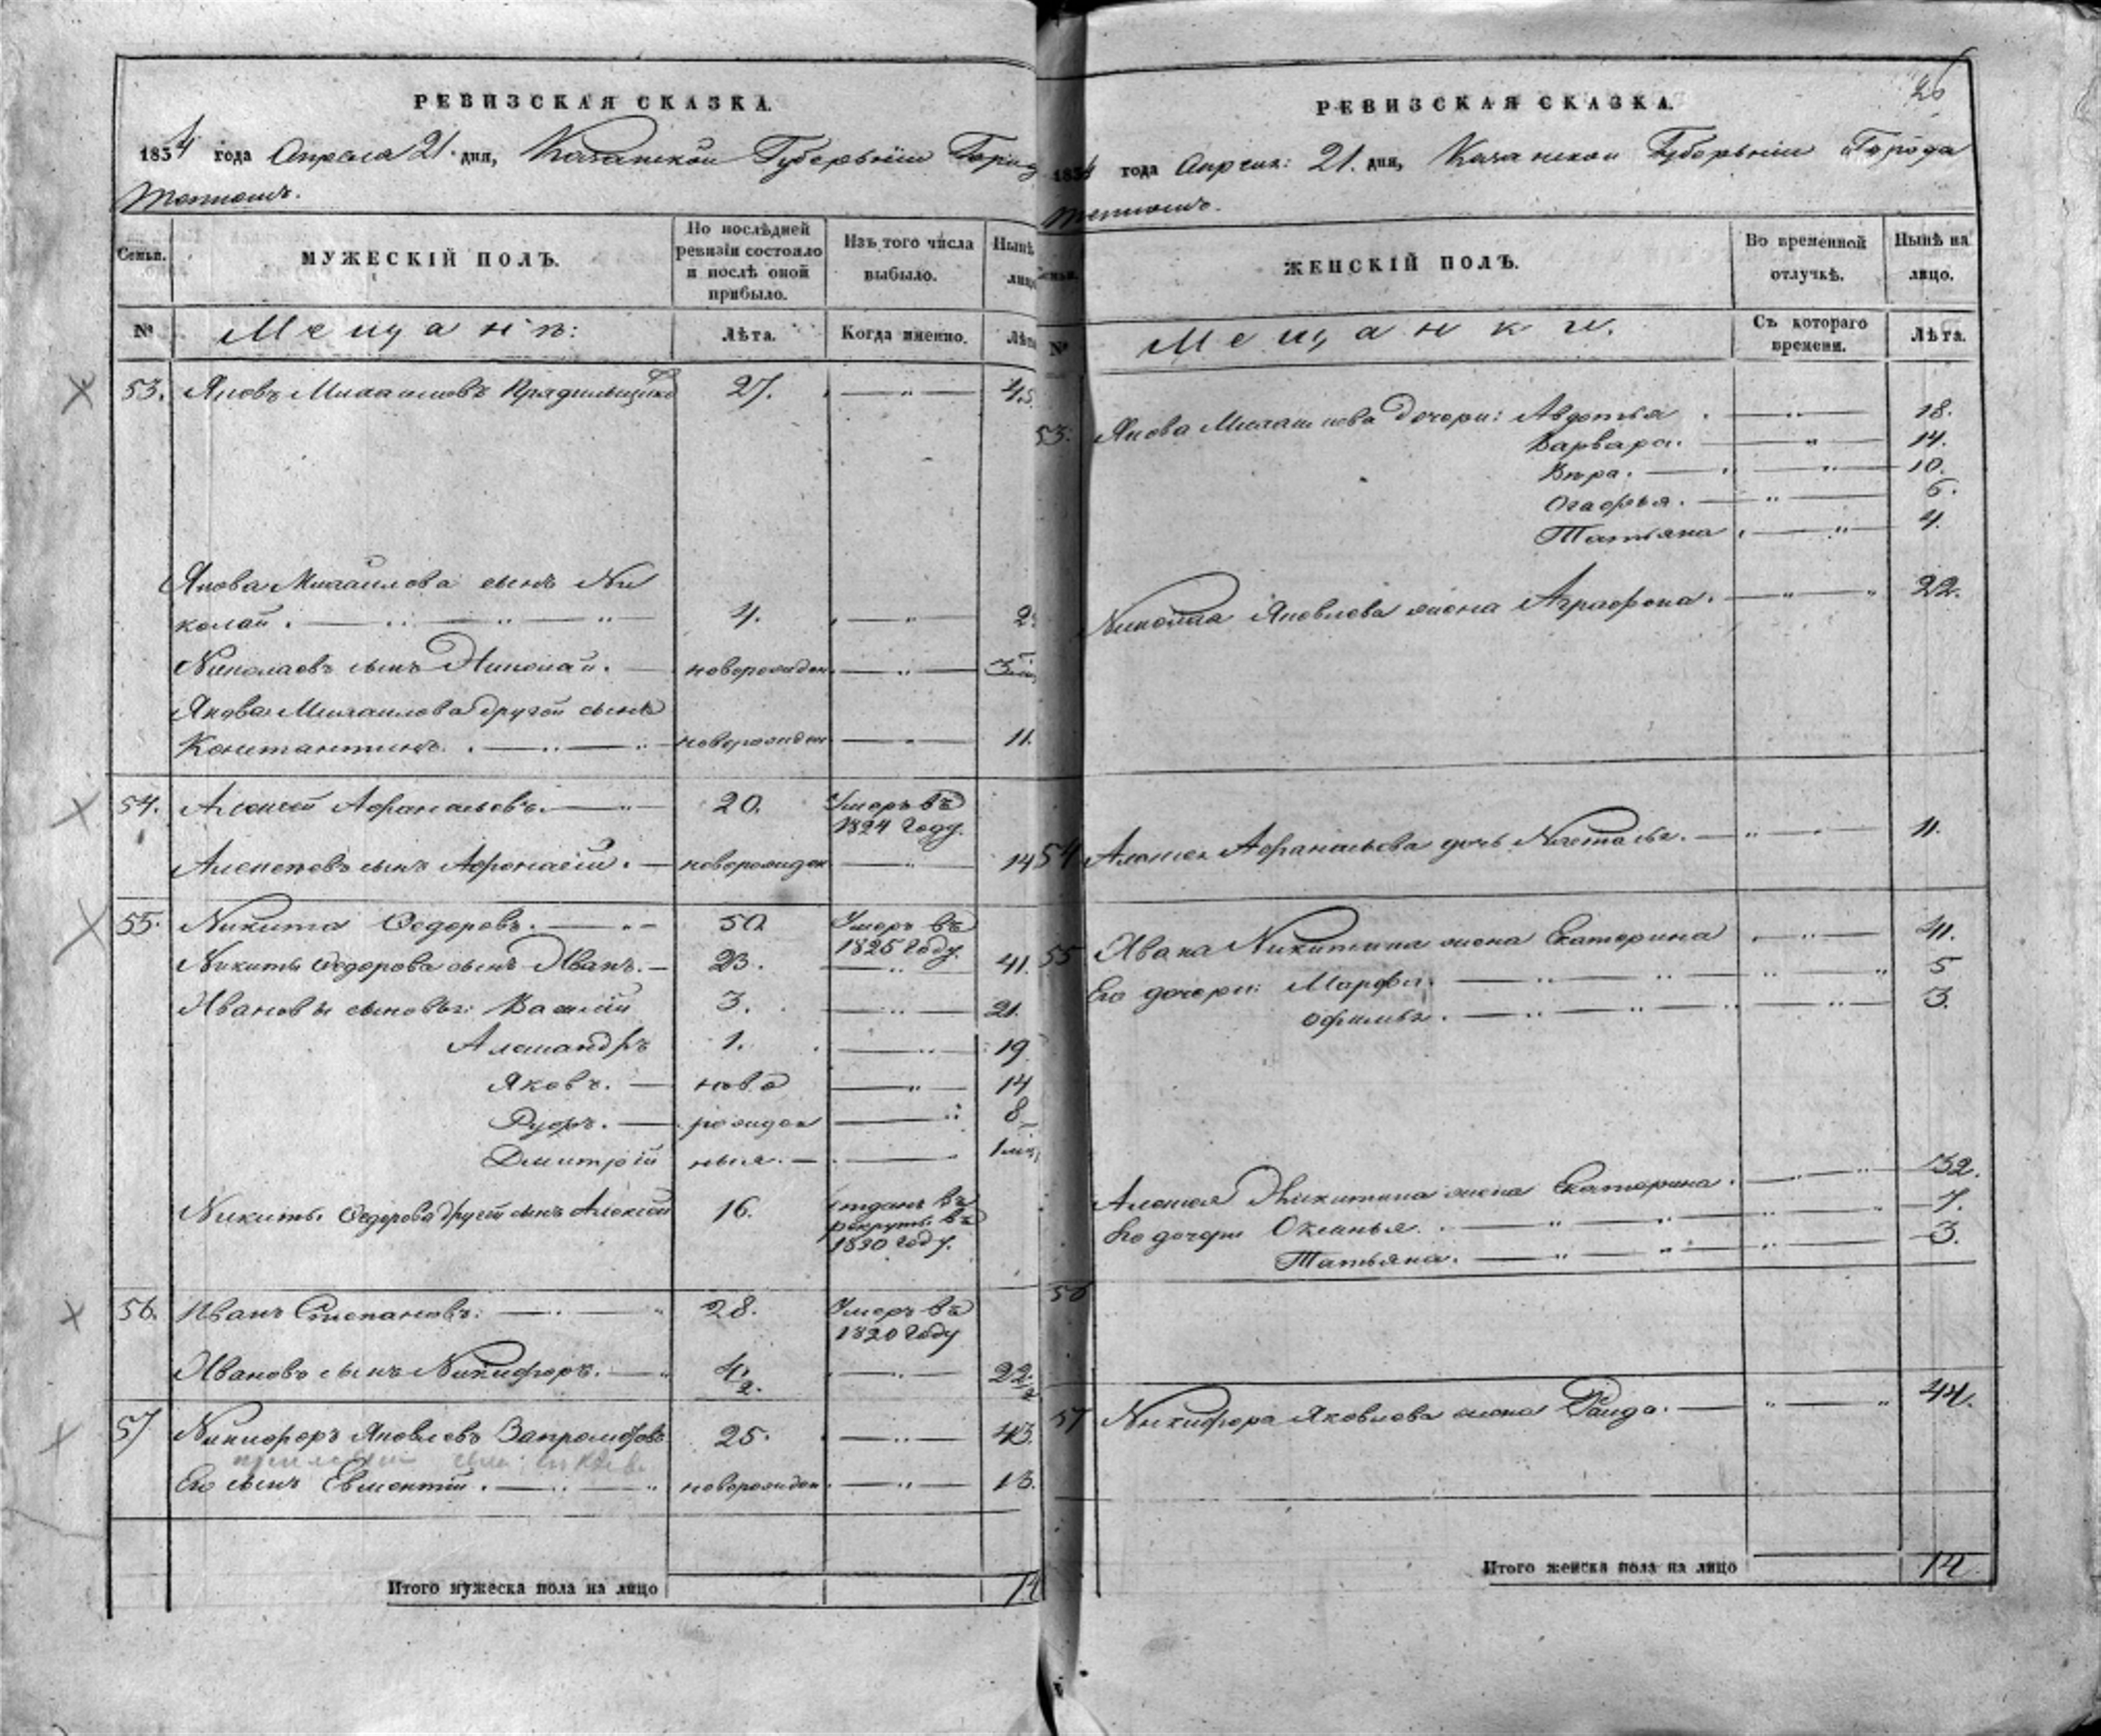 РЕВИЗСКАЯ СКАЗКА.
1834 года Апреля 21. дня, Казанской Губернiи Города
Тетюшъ.
Семьи.
МУЖЕСКIЙ ПОЛЪ.
По послѣдней ревизiи состояло и послѣ оной прибыло.
Изъ того числа выбыло.
Нынѣ лицо
№
Мещанѣ:
Лѣта.
Когда именно.
Лѣта
53. Яковъ Михаиловъ Прядильщиковъ 27. 45.
Якова Михаилова сынъ Ни
колай. 4. 2
Николаевъ сынъ Николай. новорожден
Якова Михаилова другой сынъ
Константинъ. новорожден 11.
54. Алексей Афанасьевъ. 20. Умеръ въ
1824 году.
Алексеевъ сынъ Афонасiй. новорожден 14
55. Никита Федоровъ. 50 Умеръ въ
1825 году.
Никиты Федорова сынъ Иванъ. 23. 41.
Ивановы сыновья: Василiй 3. 21.
Александръ 1. 19.
Яковъ. ново 14
Ѳедоръ. рожден 8
Дмитрiй ныя. 1
Никиты Федорова другой сынъ Алексей 16. отданъ въ
рекруты въ
1830 году.
56. Иванъ Степановъ. 28. Умеръ въ
1820 году
Ивановъ сынъ Никифоръ. 4 1/2. 22 1/2
57 Никифоръ Яковлевъ 25. 43.
Его сынъ Евментiй. новорожден 13.
Итого мужеска пола на лицо 14
26
РЕВИЗСКАЯ СКАЗКА.
1834 года Апреля: 21. дня, Казанской Губернiи Города
Тетюшъ.
Семьи.
ЖЕНСКIЙ ПОЛЪ.
Во временной отлучкѣ.
Нынѣ на лицо.
№
Мещанки.
Съ котораго времени.
Лѣта.
53. Якова Михаилова дочери: Авдотья 18.
Варвара. 14.
Вѣра. 10.
Огафья. 6.
Татьяна 4.
Николая Яковлева жена Аграфена. 22.
54 Алексея Афанасьева дочь Наталья. 11.
55 Ивана Никитина жена Екатерина 41.
Его дочери: Марфа. 5
Офимья. 3.
Алексея Никитина жена Екатерина. 32.
Его дочери Оксинья. 7.
Татьяна. 3.
56
57 Никифора Яковлева жена 44.
Итого женска пола на лицо 14